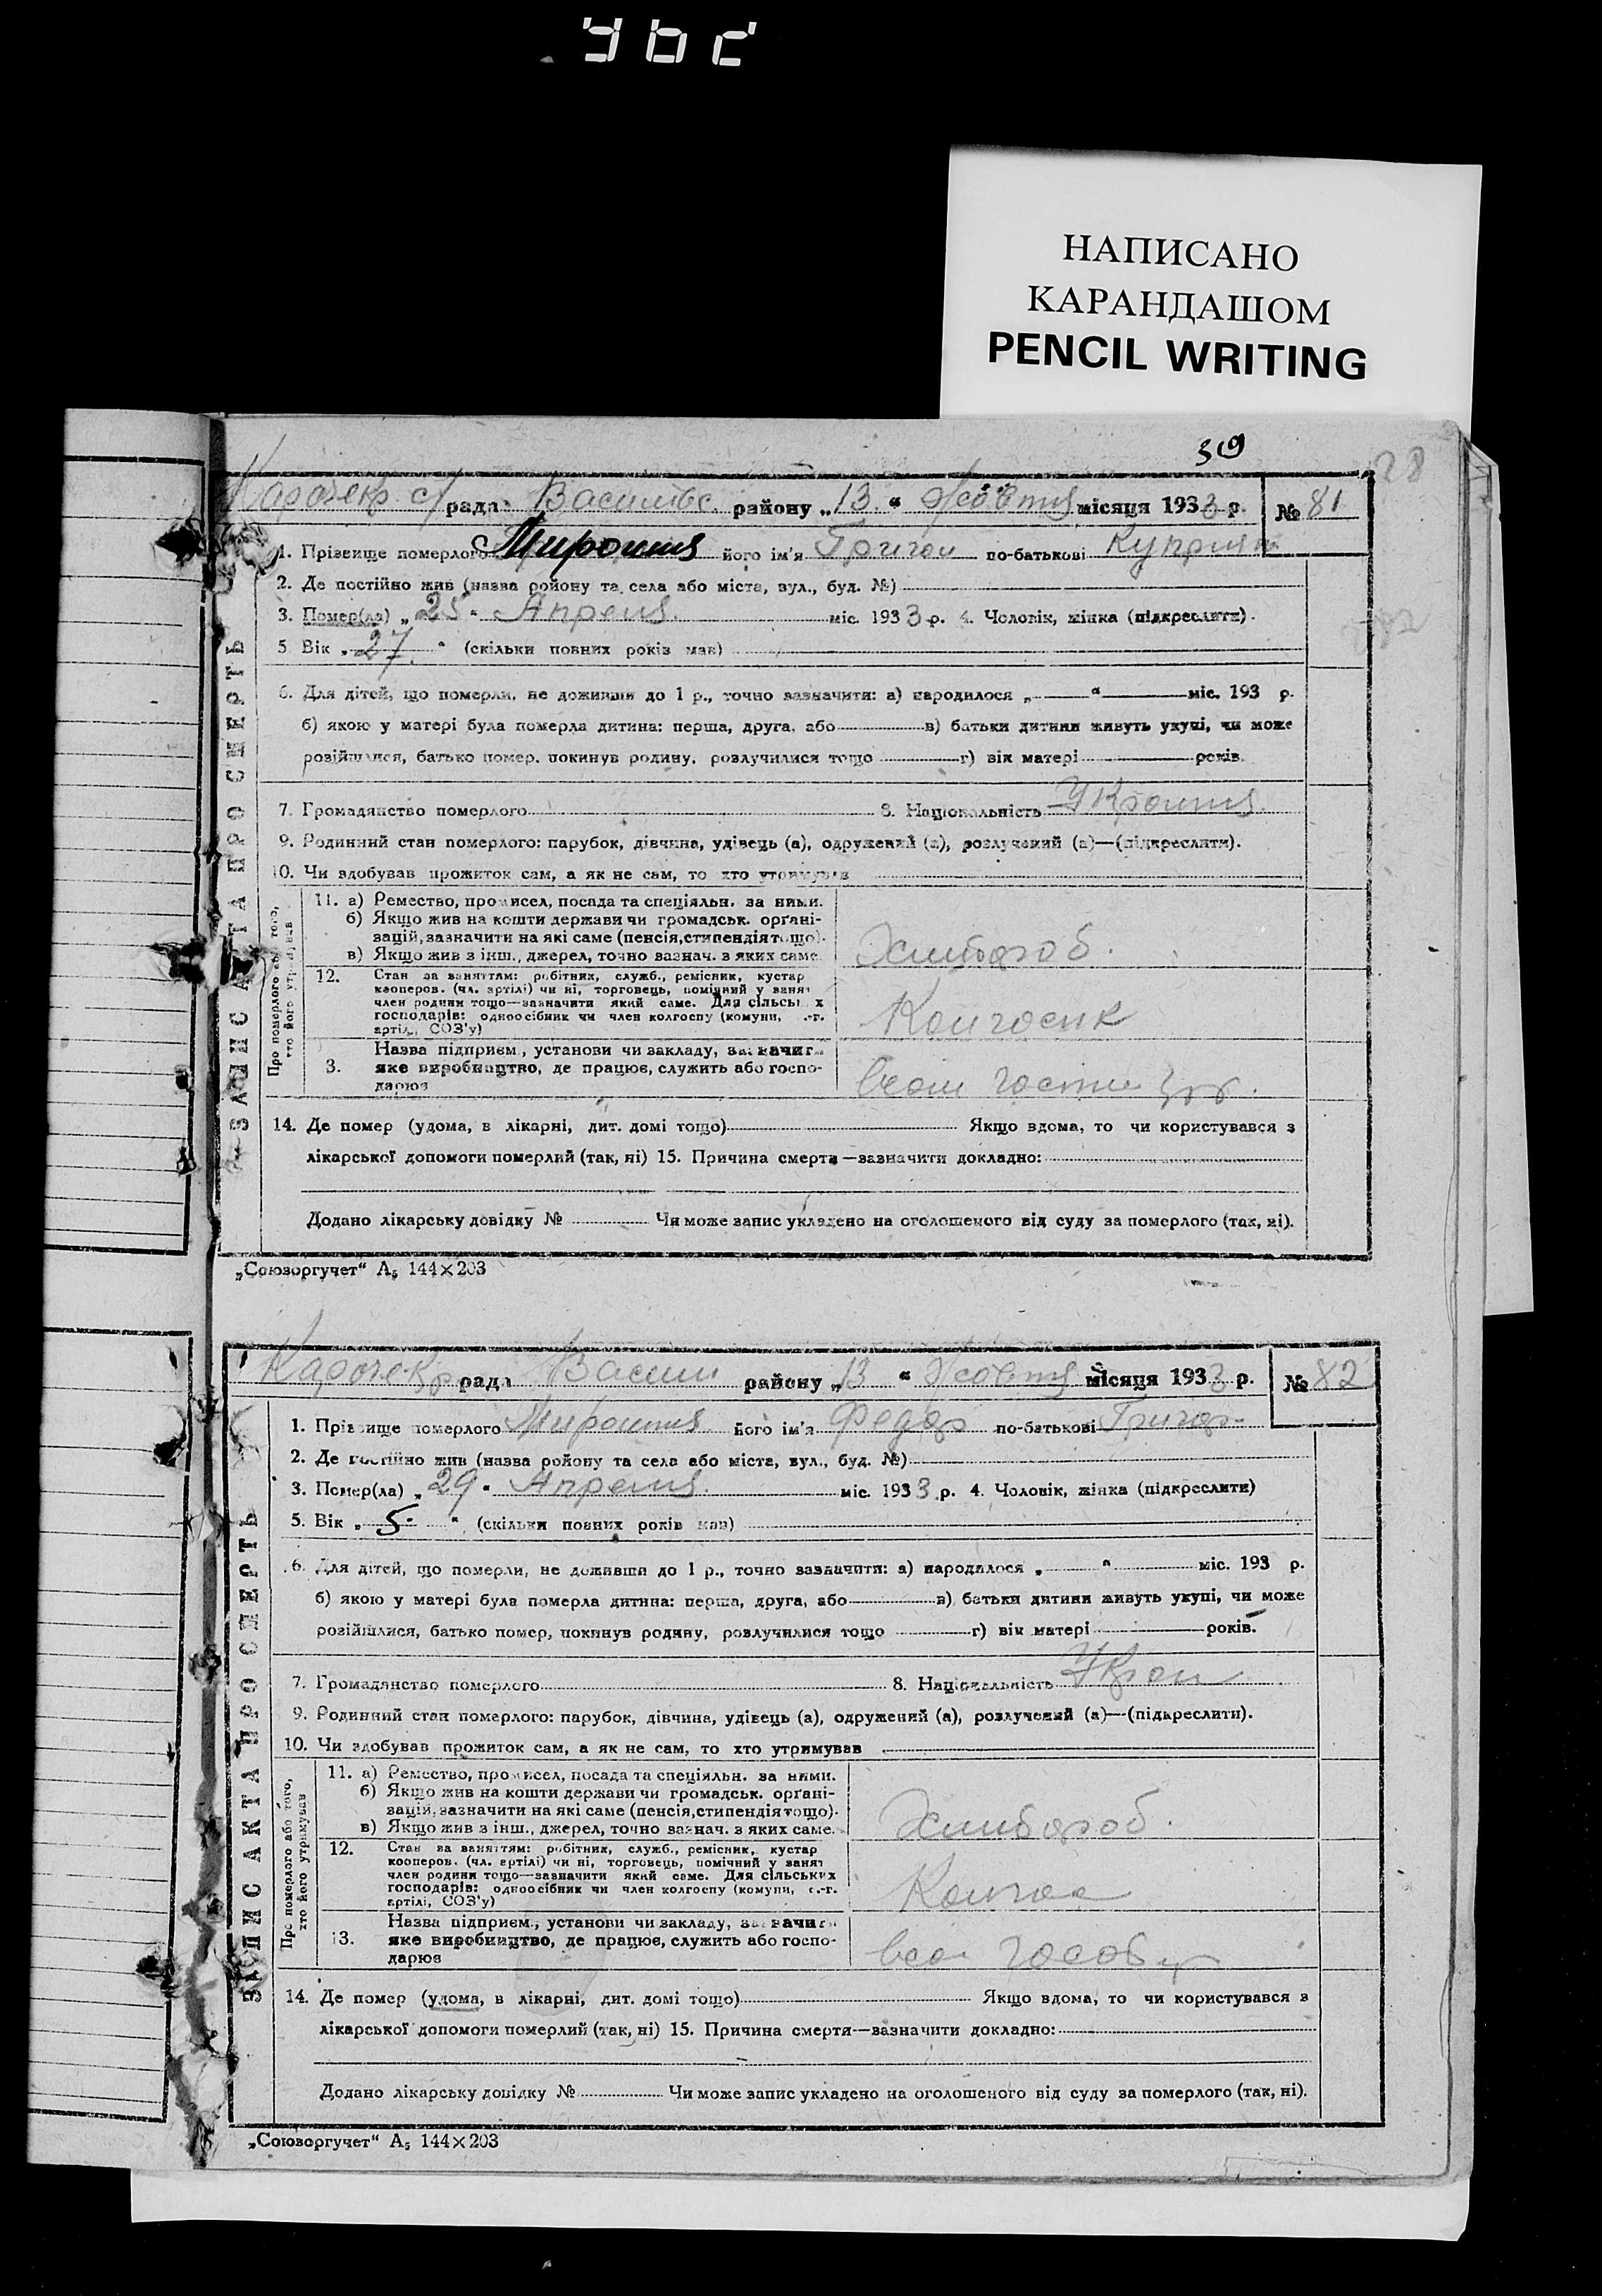 НАПИСАНО
КАРАНДАШОМ
PENCIL WRITING
59
28
рада Васильє району „13“ Жовтня місяця 1933 р. № 81
1. Прізвище померлого його ім'я Григор по-батькові Куприян
2. Де постійно жив (назва району та села або міста, вул., буд. №)
3. Помер(ла) „25“ Апреля міс. 1933 р. 4. Чоловік, жінка (підкреслити).
5. Вік „27“ (скільки повних років мав)
6. Для дітей, що померли, не доживши до 1 р., точно зазначити: а) народилося „ “ міс. 193 р.
б) якою у матері була померла дитина: перша, друга, або в) батьки дитини живуть укупі, чи може
розійшлися, батько помер, покинув родину, розлучилися тощо г) вік матері років.
7. Громадянство померлого 8. Національність
9. Родинний стан померлого: парубок, дівчина, удівець (а), одружений (а), розлучений (а)—(підкреслити).
10. Чи здобував прожиток сам, а як не сам, то хто утримував
ЗАПИС АКТА ПРО СМЕРТЬ
Про померлого або того, хто його утримував
11. а) Ремество, промисел, посада та спеціяльн. за ними.
б) Якщо жив на кошти держави чи громадськ. органі-
зацій, зазначити на які саме (пенсія, стипендія тощо).
в) Якщо жив з інш., джерел, точно зазнач. з яких саме
Хлибороб.
12. Стан за заняттям: робітник, служб., ремісник, кустар
кооперов. (чл. артілі) чи ні, торговець, помічний у занят
член родини тощо—зазначити який саме. Для сільських
господарів: одноосібник чи член колгоспу (комуни, с.-г.
артілі, СОЗ'у)
13. Назва підприєм., установи чи закладу, зазначити
яке виробництво, де працює, служить або госпо-
дарює
14. Де помер (удома, в лікарні, дит. домі тощо) Якщо вдома, то чи користувався з
лікарської допомоги померлий (так, ні) 15. Причина смерти—зазначити докладно:
Додано лікарську довідку № Чи може запис укладено на оголошеного від суду за померлого (так, ні).
„Союзоргучет“ А5 144×203
рада Васил району „13“ Жовтня місяця 1933 р. № 82
1. Прізвище померлого його ім'я Федор по-батькові Григор
2. Де постійно жив (назва району та села або міста, вул., буд. №)
3. Помер(ла) „29“ Апреля міс. 1933 р. 4. Чоловік, жінка (підкреслити)
5. Вік „5“ (скільки повних років мав)
6. Для дітей, що померли, не доживши до 1 р., точно зазначити: а) народилося „ “ міс. 193 р.
б) якою у матері була померла дитина: перша, друга, або в) батьки дитини живуть укупі, чи може
розійшлися, батько помер, покинув родину, розлучилися тощо г) вік матері років.
7. Громадянство померлого 8. Національність
9. Родинний стан померлого: парубок, дівчина, удівець (а), одружений (а), розлучений (а)—(підкреслити).
10. Чи здобував прожиток сам, а як не сам, то хто утримував
ЗАПИС АКТА ПРО СМЕРТЬ
Про померлого або того, хто його утримував
11. а) Ремество, промисел, посада та спеціяльн. за ними.
б) Якщо жив на кошти держави чи громадськ. органі-
зацій, зазначити на які саме (пенсія, стипендія тощо).
в) Якщо жив з інш., джерел, точно зазнач. з яких саме.
Хлибороб.
12. Стан за заняттям: робітник, служб., ремісник, кустар
кооперов. (чл. артілі) чи ні, торговець, помічний у занят
член родини тощо—зазначити який саме. Для сільських
господарів: одноосібник чи член колгоспу (комуни, с.-г.
артілі, СОЗ'у)
13. Назва підприєм., установи чи закладу, зазначити
яке виробництво, де працює, служить або госпо-
дарює
14. Де помер (удома, в лікарні, дит. домі тощо) Якщо вдома, то чи користувався з
лікарської допомоги померлий (так, ні) 15. Причина смерти—зазначити докладно:
Додано лікарську довідку № Чи може запис укладено на оголошеного від суду за померлого (так, ні).
„Союзоргучет“ А5 144×203